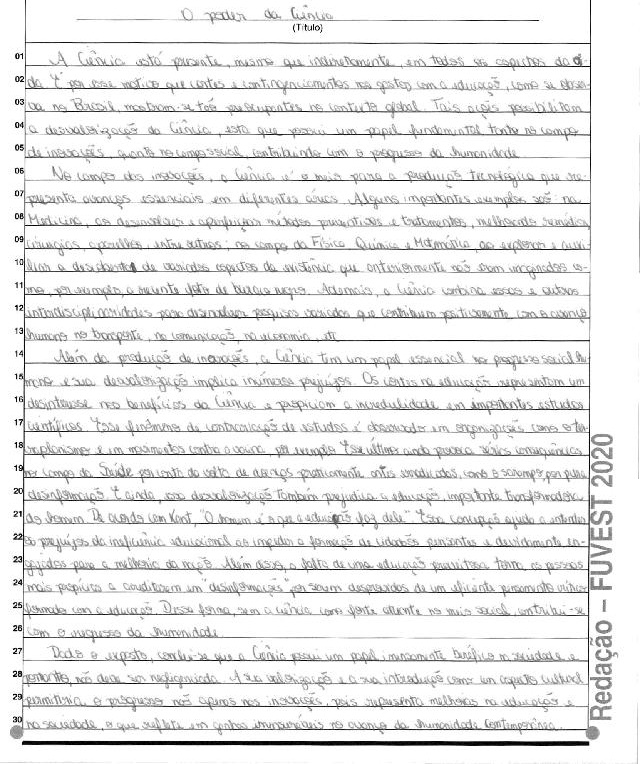 O poder da Ciência
(Título)
01 A Ciência está presente, mesmo que indiretamente, em todos os aspectos da vi-
02 da. É por esse motivo que cortes e contingenciamentos nos gastos com a educação, como se obser-
03 va no Brasil, mostram-se tão preocupantes no contexto global. Tais ações possibilitam
04 a desvalorização da Ciência, esta que possui um papel fundamental tanto no campo
05 de inovações, quanto no campo social, contribuindo com o progresso da humanidade.
06 No campo das inovações, a Ciência é o meio para a produção tecnológica que re-
07 presenta avanços essenciais em diferentes áreas. Alguns importantes exemplos são na
08 Medicina, ao desenvolver e aperfeiçoar métodos preventivos e tratamentos, melhorando remédios,
09 cirurgias, aparelhos, entre outros; no campo da Física, Química e Matemática, ao explorar e auxi-
10 liar a descoberta de variados aspectos da existência que anteriormente não eram imaginados co-
11 mo, por exemplo, a recente foto de buraco negro. Ademais, a Ciência combina essas e outras
12 interdisciplinaridades para desenvolver pesquisas variadas que contribuem positivamente com o avanço
13 humano no transporte, na comunicação, na economia, etc.
14 Além da produção de inovações, a Ciência tem um papel essencial no progresso social hu-
15 mano e sua desvalorização implica inúmeros prejuízos. Os cortes na educação representam um
16 desinteresse nos benefícios da Ciência e propiciam a incredulidade em importantes estudos
17 científicos. Esse fenômeno de contrariação de estudos é observado em organizações como o ter-
18 raplanismo e em movimentos contra a vacina, por exemplo. Esse último ainda provoca sérias consequências
19 no campo da Saúde por conta da volta de doenças praticamente antes erradicadas, como o sarampo, por pura
20 desinformação. E ainda, essa desvalorização também prejudica a educação, importante transformadora
21 do homem. De acordo com Kant, "O homem é o que a educação faz dele". Essa concepção ajuda a entender
22 os prejuízos da ineficiência educacional ao impedir a formação de cidadãos pensantes e devidamente en-
23 gajados para a melhoria da nação. Além disso, a falta de uma educação proveitosa torna as pessoas
24 mais propícias a acreditarem em "desinformações", por serem desprovidas de um eficiente pensamento crítico
25 formado com a educação. Dessa forma, sem a Ciência como fonte no meio social, contribui-se
26 com o regresso da humanidade.
27 Dado o exposto, conclui-se que a Ciência possui um papel imensamente benéfico na sociedade e,
28 portanto, não deve ser negligenciada. A sua valorização e a sua introdução como um aspecto cultural
29 permitiria o progresso não apenas nas inovações, pois representa melhorias na educação e
30 na sociedade, o que reflete em ganhos imensuráveis no avanço da humanidade contemporânea.
Redação – FUVEST 2020